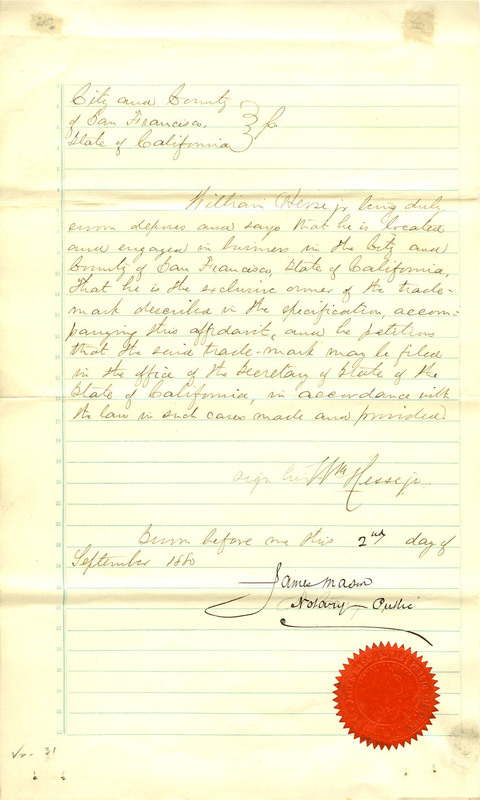 City and County
of San Francisco,
State of California
William Hesse jr being duly
sworn deposes and says that he is located
and engaged in business in the City and
County of San Francisco, State of California,
That he is the exclusive owner of the trade-
mark described in the specification, accom-
panying this affidavit, and he petitions
that the said trade-mark may be filed
in the office of the Secretary of State of the
State of California, in accordance with
the law in such cases made and provided.
sign here Wm Hesse jr.
Sworn before me this 2nd day of
September 1880
James Mason
Notary Public
31